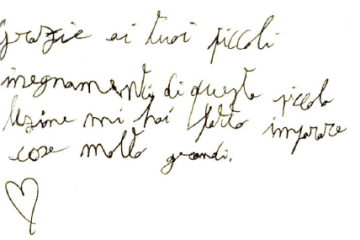 Grazie ai tuoi piccoli
insegnamenti, di questa piccola
lezione mi hai fatto imparare
cose molto grandi.